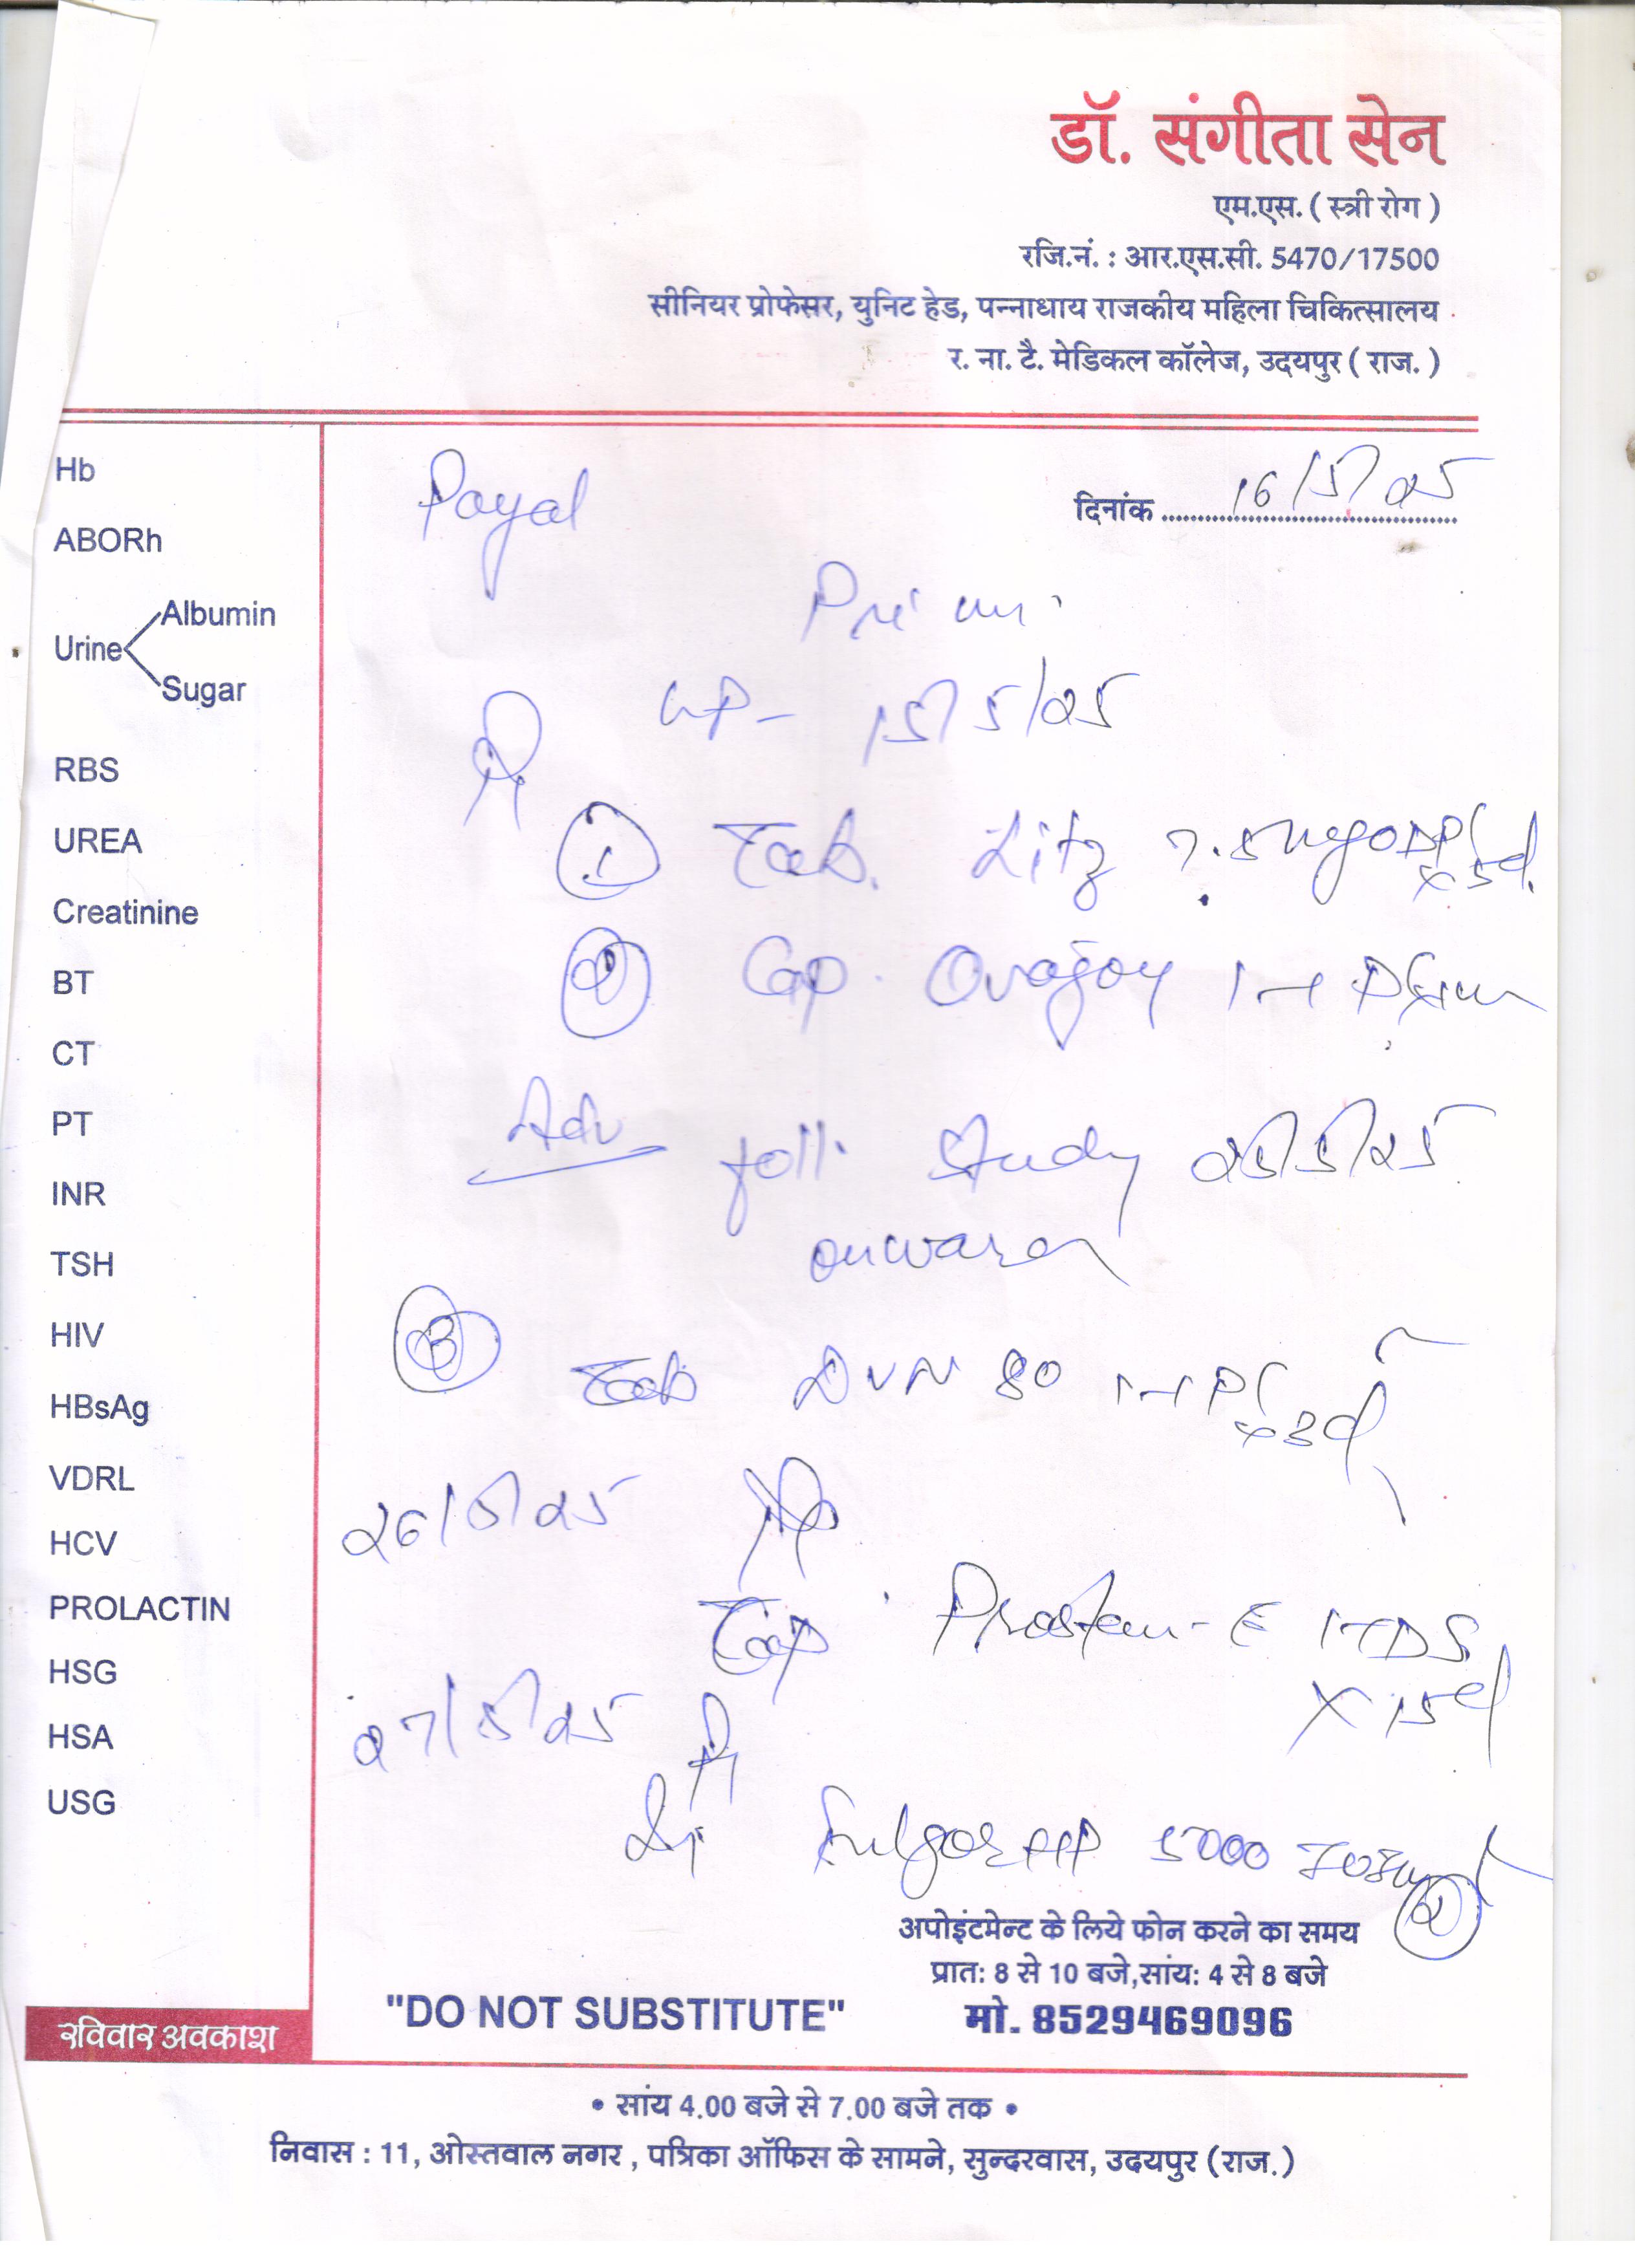 डॉ. संगीता सेन
एम.एस. ( स्त्री रोग )
रजि.नं. : आर.एस.सी. 5470/17500
सीनियर प्रोफेसर, युनिट हेड, पन्नाधाय राजकीय महिला चिकित्सालय
र. ना. टै. मेडिकल कॉलेज, उदयपुर ( राज. )
Hb
ABORh
Urine
Albumin
Sugar
RBS
UREA
Creatinine
BT
CT
PT
INR
TSH
HIV
HBsAg
VDRL
HCV
PROLACTIN
HSG
HSA
USG
रविवार अवकाश
Payal
दिनांक 16/5/25
Primi
LMP - 15/5/25
① Tab. Litz 7.5mg OD x 5d.
② Cap. Ovajoy 1-1
Adv
foll. Study 25/5/25
onward
③ Tab DVN 80 1-1 x 3d
26/5/25
Cap. 1 TDS
x 15d
27/5/25
5000
②
अपोइंटमेन्ट के लिये फोन करने का समय
प्रात: 8 से 10 बजे,सांय: 4 से 8 बजे
"DO NOT SUBSTITUTE" मो. 8529469096
• सांय 4.00 बजे से 7.00 बजे तक •
निवास : 11, ओस्तवाल नगर , पत्रिका ऑफिस के सामने, सुन्दरवास, उदयपुर (राज.)